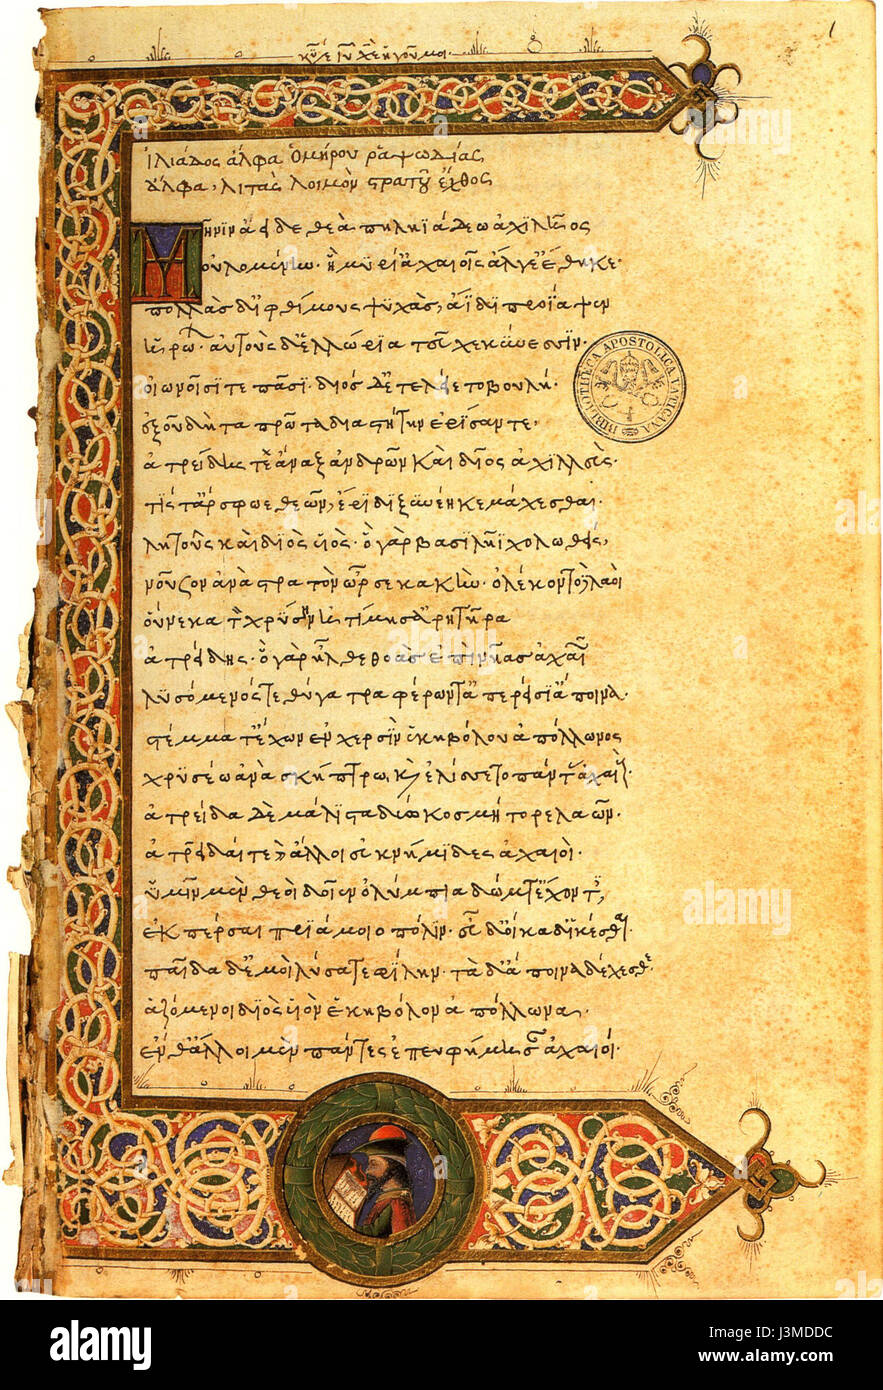 1
κύριε ἰησοῦ χριστὲ ἡγοῦ μοι
ἰλιάδος ἄλφα ὁμήρου ῥαψωδίας
ἄλφα, λιτὰς λοιμὸν στρατοῦ ἔχθος
Μῆνιν ἄειδε θεὰ πηληϊάδεω ἀχιλῆος
οὐλομένην· ἣ μυρί ἀχαιοῖς ἄλγε ἔθηκε·
πολλὰς δ ἰφθίμους ψυχὰς, ἄϊδι προΐαψεν
ἡρώων· αὐτοὺς δὲ ἑλλώρια τεῦχε κύνεσσιν·
οἰωνοῖσί τε πᾶσι· διὸς δ ἐτελείετο βουλή·
ἐξ οὗ δὴ τα πρῶτα διαστήτην ἐρίσαντε,
ἀτρείδης τὲ ἄναξ ἀνδρῶν καὶ δῖος ἀχιλλεύς·
τίς τ ἄρ σφωε θεῶν, ἔριδι ξυνέηκε μάχεσθαι·
λητοῦς καὶ διὸς υἱός· ὁ γὰρ βασιλῆϊ χολωθείς,
νοῦσον ἀνὰ στρατὸν ὦρσε κακὴν· ὀλέκοντο δὲ λαοὶ
οὕνεκα τὸν χρύσην ἠτίμησ ἀρητῆρα
ἀτρείδης· ὁ γὰρ ἦλθε θοὰς ἐπὶ νῆας ἀχαιῶν
λυσόμενός τε θύγατρα φέρων τ ἀπερείσι ἄποινα·
στέμμα τ ἔχων ἐν χερσὶν ἑκηβόλου ἀπόλλωνος
χρυσέω ἀνὰ σκήπτρω, καὶ ἐλίσσετο πάντας ἀχαιούς·
ἀτρείδα δὲ μάλιστα δύω κοσμήτορε λαῶν·
ἀτρεῖδαι τε καὶ ἄλλοι ἐϋκνήμιδες ἀχαιοὶ·
ὑμῖν μὲν θεοὶ δοῖεν ὀλύμπια δώματ ἔχοντες,
ἐκπέρσαι πριάμοιο πόλιν· εὖ δ οἴκαδ ἱκέσθαι·
παῖδα δέ μοὶ λύσατε φίλην· τὰ δ ἄποινα δέχεσθε·
ἁζόμενοι διὸς υἱὸν ἑκηβόλον ἀπόλλωνα·
ἔνθ ἄλλοι μὲν πάντες ἐπευφήμησαν ἀχαιοί·
BIBLIOTHECA APOSTOLICA VATICANA
alamy
alamy
Image ID: J3MDDC
www.alamy.com